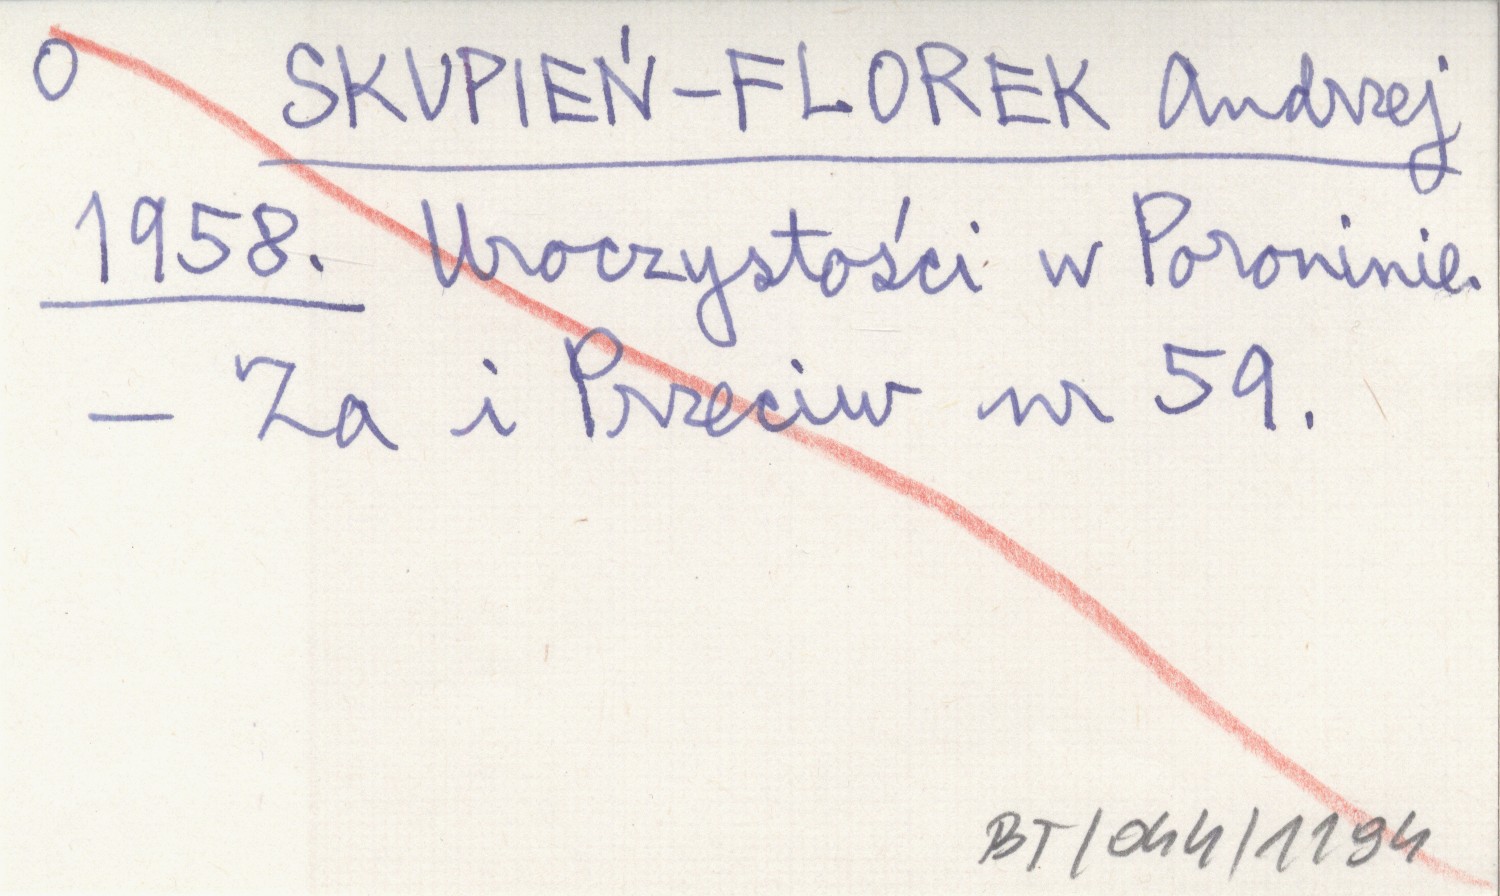 O SKUPIEŃ-FLOREK Andrzej
1958. Uroczystości w Poroninie.
- Za i Przeciw nr 59.
BT/044/1194